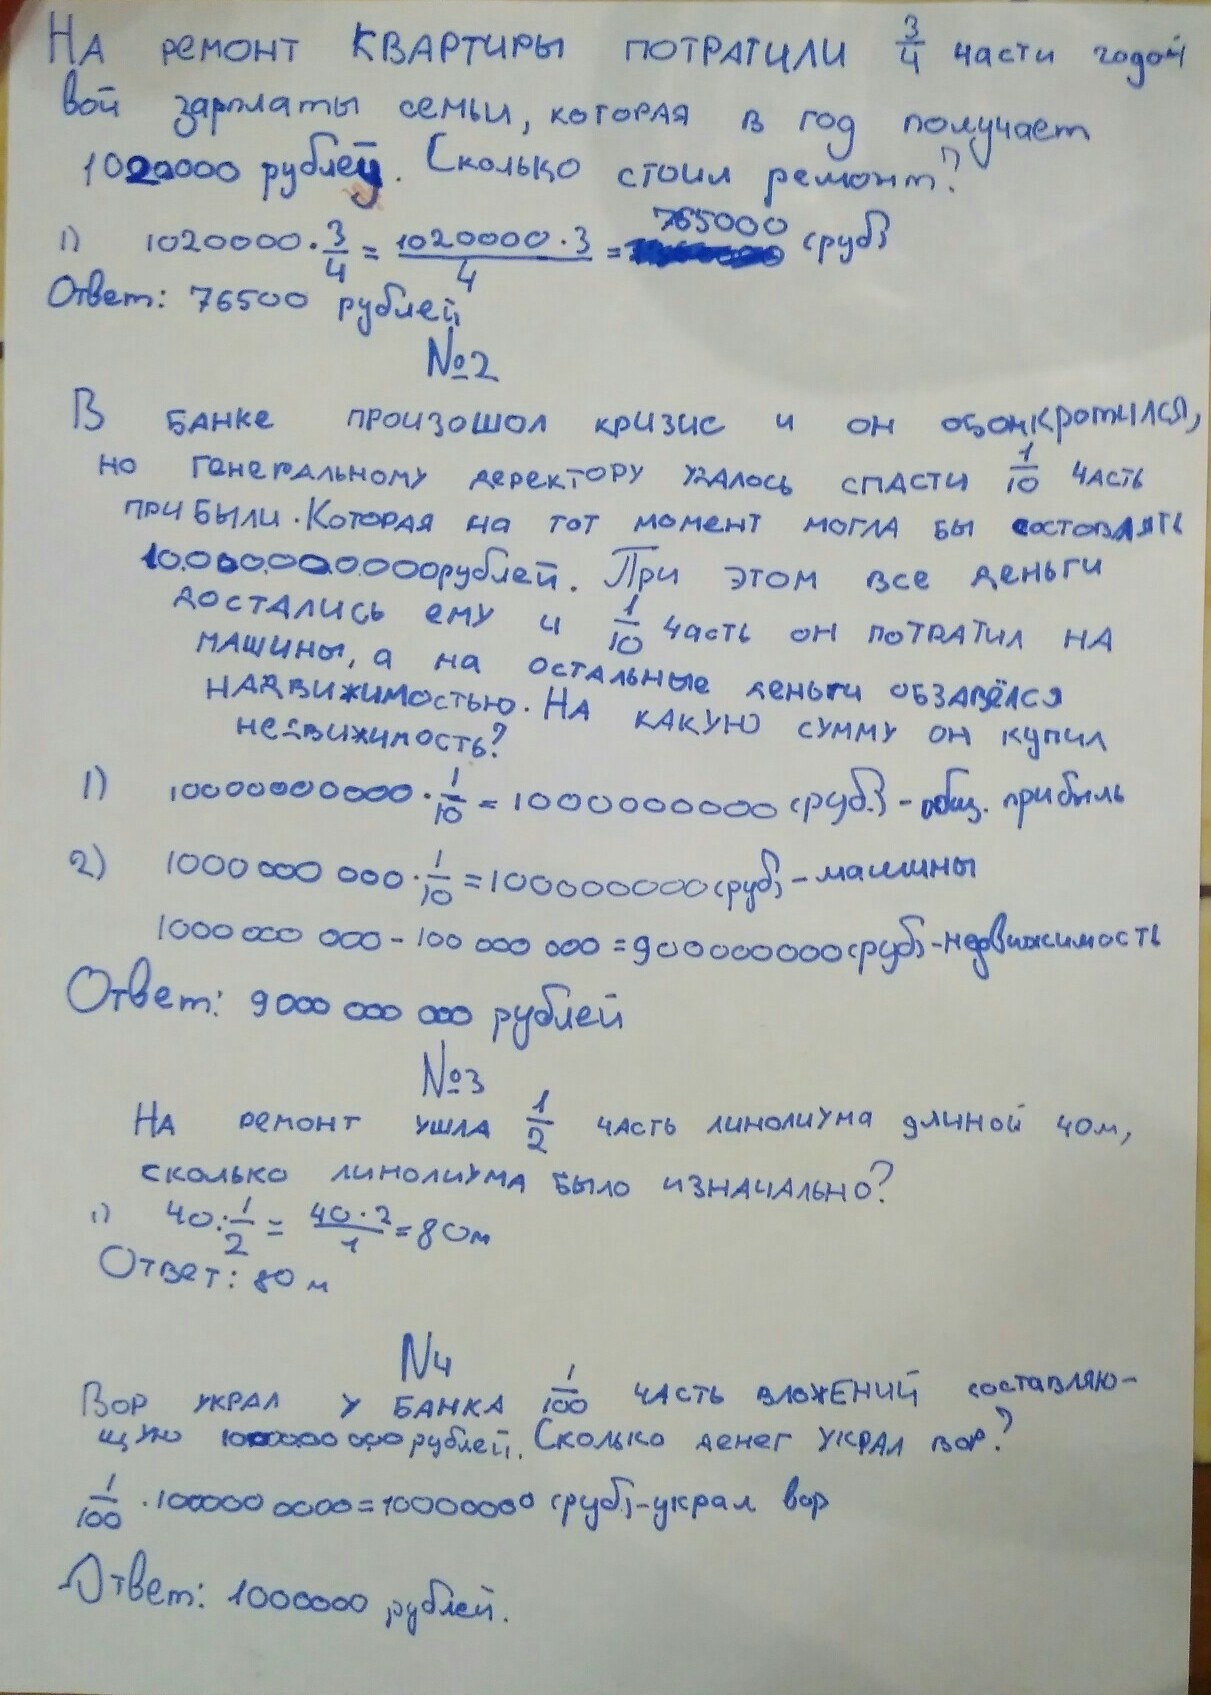 На ремонт квартиры потратили 3/4 части годой
вой зарплаты семьи, которая в год получает
1020000 рублей. Сколько стоил ремонт?
1) 1020000 · 3/4 = 1020000 · 3 / 4 = 765000 (руб)
Ответ: 76500 рублей
№2
В банке произошол кризис и он обонкротился,
но генеральному деректору удалось спасти 1/10 часть
прибыли. Которая на тот момент могла бы состовлять
10.000.000.000 рублей. При этом все деньги
достались ему и 1/10 часть он потратил на
машины, а на остальные деньги обзавёлся
надвижимостью. На какую сумму он купил
недвижимость?
1) 10000000000 · 1/10 = 1000000000 (руб.) - общ. прибыль
2) 1000 000 000 · 1/10 = 100000000 (руб) - машины
1000 000 000 - 100 000 000 = 900000000 (руб) - недвижимость
Ответ: 9000 000 000 рублей
№3
На ремонт ушла 1/2 часть линолиума длиной 40м,
сколько линолиума было изначально?
1) 40 : 1/2 = 40 · 2 / 1 = 80м
Ответ: 80 м
N4
Вор украл у банка 1/100 часть вложений составляю-
щую рублей. Сколько денег украл вор?
1/100 · 100000 0000 = 10000000 (руб) - украл вор
Ответ: 1000000 рублей.